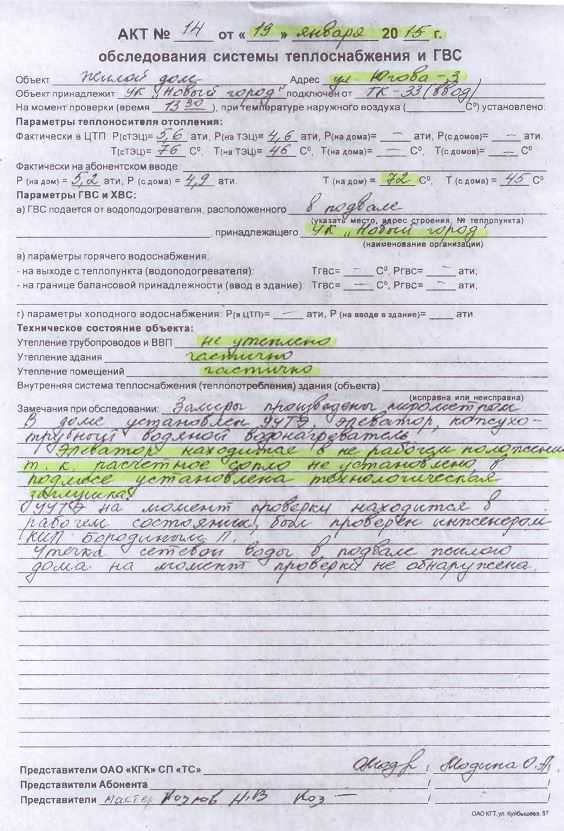 АКТ № 14 от « 19 » января 2015 г.
обследования системы теплоснабжения и ГВС
Объект Жилой дом Адрес ул Югова-3
Объект принадлежит УК "Новый город" подключен от ТК-33 (ввод)
На момент проверки (время 13 30), при температуре наружного воздуха ( С⁰) установлено:
Параметры теплоносителя отопления:
Фактически в ЦТП Р(сТЭЦ)= 5,6 ати, Р(на ТЭЦ)= 4,6 ати, Р(на дома)= — ати, Р(с домов)= — ати.
Т(сТЭЦ)= 76 С⁰, Т(на ТЭЦ)= 46 С⁰, Т(на дома)= — С⁰, Т(с домов)= — С⁰.
Фактически на абонентском вводе:
Р (на дом) = 5,2 ати, Р (с дома) = 4,9 ати. Т (на дом) = 72 С⁰, Т (с дома) = 45 С⁰
Параметры ГВС и ХВС:
а) ГВС подается от водоподогревателя, расположенного в подвале
(указать место, адрес строения, № теплопункта)
принадлежащего УК "Новый город
(наименование организации)
в) параметры горячего водоснабжения:
- на выходе с теплопункта (водоподогревателя): Тгвс= — С⁰, Ргвс= — ати;
- на границе балансовой принадлежности (ввод в здание): Тгвс= — С⁰, Ргвс= — ати,
г) параметры холодного водоснабжения: Р(в ЦТП)= — ати, Р (на вводе в здание)= — ати.
Техническое состояние объекта:
Утепление трубопроводов и ВВП не утеплено
Утепление здания частично
Утепление помещений частично
Внутренняя система теплоснабжения (теплопотребления) здания (объекта)
(исправна или неисправна)
Замечания при обследовании: Замеры произведены пирометром
В доме установлен УУТЭ, элеватор, кожухо-
трубный водяной водонагреватель
Элеватор находится в не рабочем положении
т.к. расчетное сопло не установлено, в
подмесе установлена технологическая
заглушка.
УУТЭ на момент проверки находится в
рабочем состоянии, был проверен инженером
КИП Бородиным П.
Утечка сетевой воды в подвале жилого
дома на момент проверки не обнаружена.
Представители ОАО «КГК» СП «ТС» Модина О.А.
Представители Абонента
Представители мастер Н.В
ОАО КГТ, ул. Куйбышева, 57